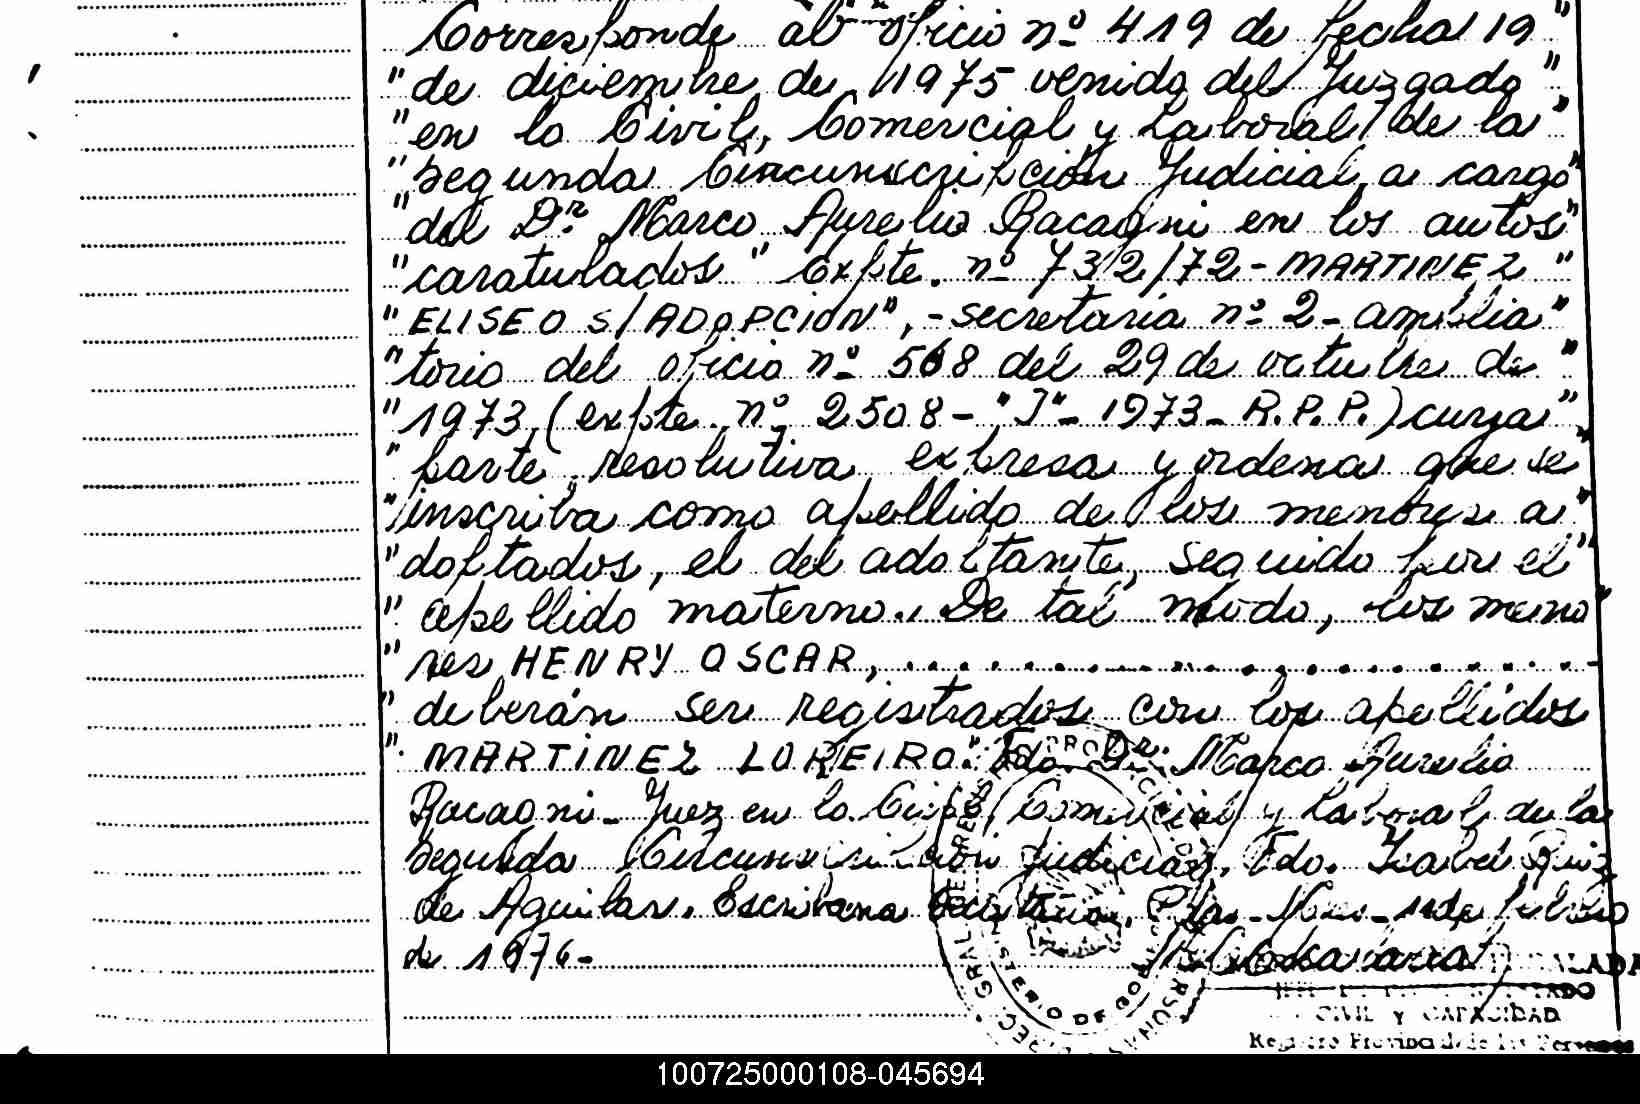 Corresponde al oficio nº 419 de fecha 19"
"de diciembre de 1975 venido del Juzgado"
"en lo Civil, Comercial y Laboral de la"
"Segunda Circunscripción Judicial a cargo"
"del Dr. Marco Aurelio Racagni en los autos"
"caratulados "Expte. nº 732/72-MARTINEZ"
"ELISEO S/ADOPCION",-Secretaría nº 2-amplia"
"torio del oficio nº 568 del 29 de octubre de"
"1973, (expte. nº 2508-"J"-1973-R.P.P.) cuya"
"parte resolutiva expresa y ordena que se"
"inscriba como apellido de los menores a"
"doptados, el del adoptante, seguido por el"
"apellido materno. De tal modo, los meno"
"res HENRY OSCAR,....................-
"deberán ser registrados con los apellidos
". MARTINEZ LOREIRO." Fdo. Dr. Marco Aurelio
Racagni-Juez en lo Civil, Comercial y Laboral de la
Segunda Circunscripción Judicial. Fdo. Isabel Ruiz
de Aguilar. Escribana Secretaria. de febrero
de 1976-
CIVIL Y CAPACIDAD
Registro Provincial de las Personas
100725000108-045694